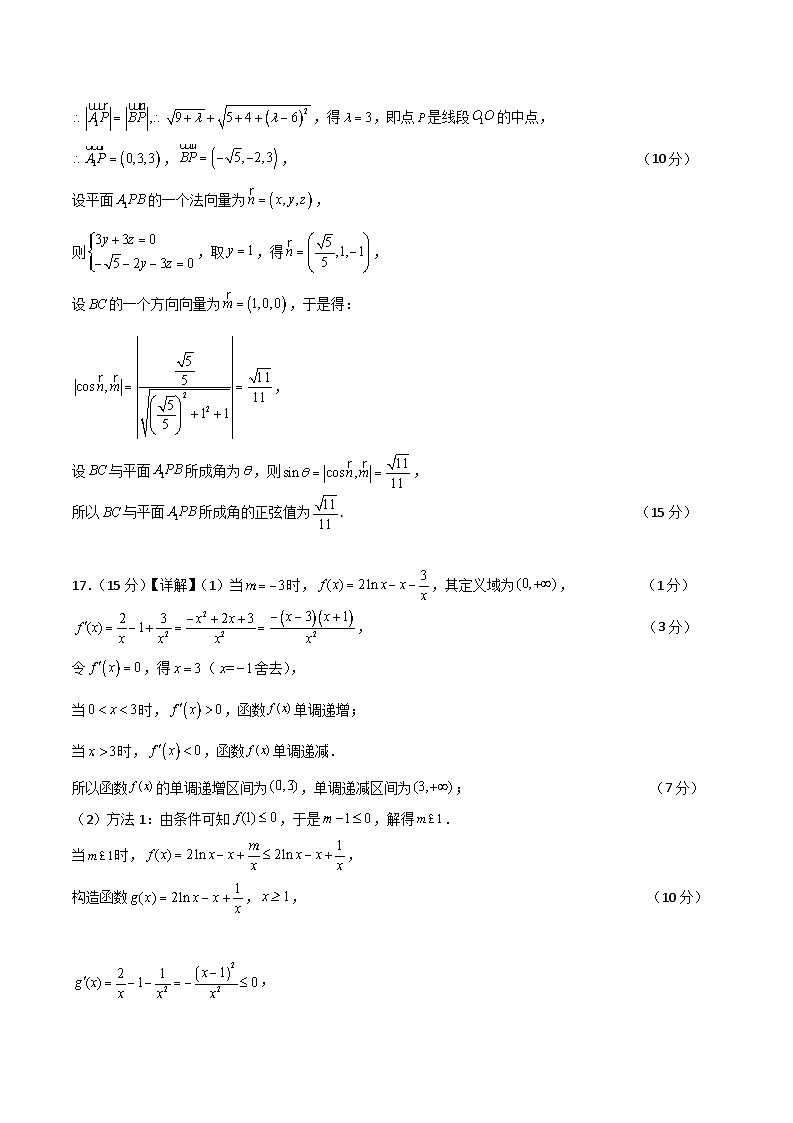 ∴ |A₁P| = |BP|, ∴ √(9+λ) + √(5+4+(λ−6)²) ，得 λ = 3，即点 P 是线段 O₁O 的中点，
∴ A₁P = (0,3,3)，BP = (−√5,−2,3)， （10 分）
设平面 A₁PB 的一个法向量为 n = (x, y, z)，
则 {3y+3z=0, −√5−2y−3z=0 ，取 y = 1，得 n = (√5/5, 1, −1)，
设 BC 的一个方向向量为 m = (1,0,0)，于是得：
|cos n, m| = |(√5/5)/√((√5/5)²+1²+1)| = √11/11，
设 BC 与平面 A₁PB 所成角为 θ，则 sin θ = |cos n, m| = √11/11，
所以 BC 与平面 A₁PB 所成角的正弦值为 √11/11． （15 分）
17.（15 分）【详解】（1）当 m = −3 时， f(x) = 2ln x − x − 3/x，其定义域为 (0,+∞)， （1 分）
f′(x) = 2/x − 1 + 3/x² = (−x²+2x+3)/x² = −(x−3)(x+1)/x²， （3 分）
令 f′(x) = 0，得 x = 3（ x=−1 舍去），
当 0 < x < 3 时， f′(x) > 0，函数 f(x) 单调递增；
当 x > 3 时， f′(x) < 0，函数 f(x) 单调递减．
所以函数 f(x) 的单调递增区间为 (0,3)，单调递减区间为 (3,+∞)； （7 分）
（2）方法 1：由条件可知 f(1) ≤ 0，于是 m − 1 ≤ 0，解得 m £ 1．
当 m £ 1 时， f(x) = 2ln x − x + m/x ≤ 2ln x − x + 1/x，
构造函数 g(x) = 2ln x − x + 1/x， x ≥ 1， （10 分）
g′(x) = 2/x − 1 − 1/x² = −(x−1)²/x² ≤ 0，